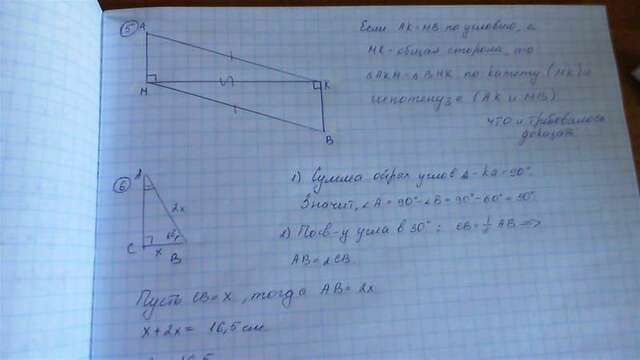 5 A
Если AK=MB по условию, а
MK-общая сторона, то
△AKM=△BMK по катету (MK) и
M K
гипотенузе (AK и MB)
B
что и требовалось
доказат
6
1) Сумма острых углов △-ка=90°.
2x
Значит, ∠A=90°-∠B=90°-60°=30°.
C x B
2) По св-у угла в 30°: CB=½AB=>
AB=2CB.
Пусть CB=x, тогда AB=2x
x+2x= 16,5 см